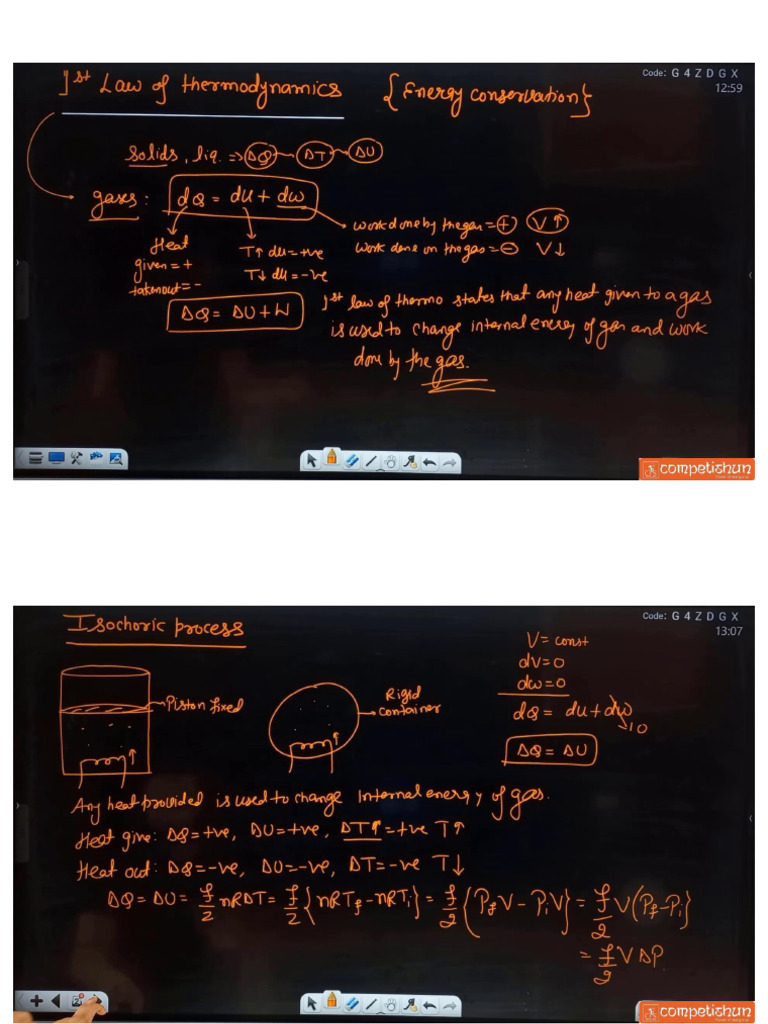 Code: G 4 Z D G X
12:59
1st Law of thermodynamics {Energy conservation}
solids, liq. => ΔQ – ΔT → ΔU
gases: dQ = du + dw
Heat given = +
taken out = -
T↑ du = +ve
T↓ du = -ve
work done by the gas = + V↑
work done on the gas = - V↓
ΔQ = ΔU + W
1st law of thermo states that any heat given to a gas
is used to change internal energy of gas and work
done by the gas.
competishun
Code: G 4 Z D G X
13:07
Isochoric process
V = const
dV = 0
dw = 0
dQ = du + dw → 0
ΔQ = ΔU
Piston fixed
Rigid
container
Any heat provided is used to change internal energy of gas.
Heat give: ΔQ = +ve, ΔU = +ve, ΔT↑ = +ve T↑
Heat out: ΔQ = -ve, ΔU = -ve, ΔT = -ve T↓
ΔQ = ΔU = f/2 nRΔT = f/2 {nRTf - nRTi} = f/2 {PfV - PiV} = f/2 V(Pf - Pi}
= f/2 V ΔP.
competishun